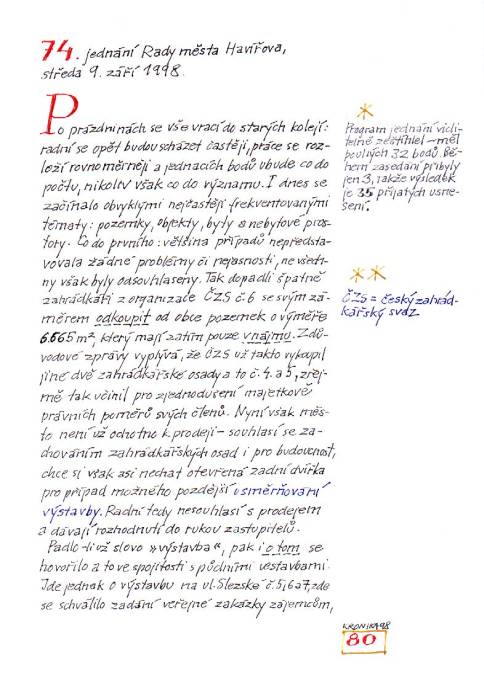 74. jednání Rady města Havířova,
středa 9. září 1998.
Po prázdninách se vše vrací do starých kolejí:
radní se opět budou scházet častěji, práce se roz-
loží rovnoměrněji a jednacích bodů ubude co do
počtu, nikoliv však co do významu. I dnes se
začínalo obvyklými nejčastěji frekventovanými
tématy: pozemky, objekty, byty a nebytové pros-
tory. Co do prvního: většina případů nepředsta-
vovala žádné problémy či nejasnosti, ne všech-
ny však byly odsouhlaseny. Tak dopadli špatně
zahrádkáři z organizace ČZS č. 6 se svým zá-
měrem odkoupit od obce pozemek o výměře
6.665 m², který mají zatím pouze v nájmu. Z dů-
vodové zprávy vyplývá, že ČZS už takto vykoupil
jiné dvě zahrádkářské osady a to č. 4 a 5, zřej-
mě tak učinil pro zjednodušení majetkově
právních poměrů svých členů. Nyní však měs-
to není už ochotno k prodeji – souhlasí se za-
chováním zahrádkářských osad i pro budoucnost,
chce si však asi nechat otevřená zadní dvířka
pro případ možného pozdější usměrňování
výstavby. Radní tedy nesouhlasí s prodejem
a dávají rozhodnutí do rukou zastupitelů.
Padlo-li už slovo »výstavba«, pak i o tom se
hovořilo a to ve spojitosti s půdními vestavbami.
Jde jednak o výstavbu na ul. Slezské č. 5, 6 a 7, zde
se schválilo zadání veřejné zakázky zájemcům,
*
Program jednání vidi-
telně zeštíhlel – měl
pouhých 32 bodů. Bě-
hem zasedání přibyly
jen 3, takže výsledek
je 35 přijatých usne-
sení.
**
ČZS = český zahrád-
kářský svaz
KRONIKA 98
80